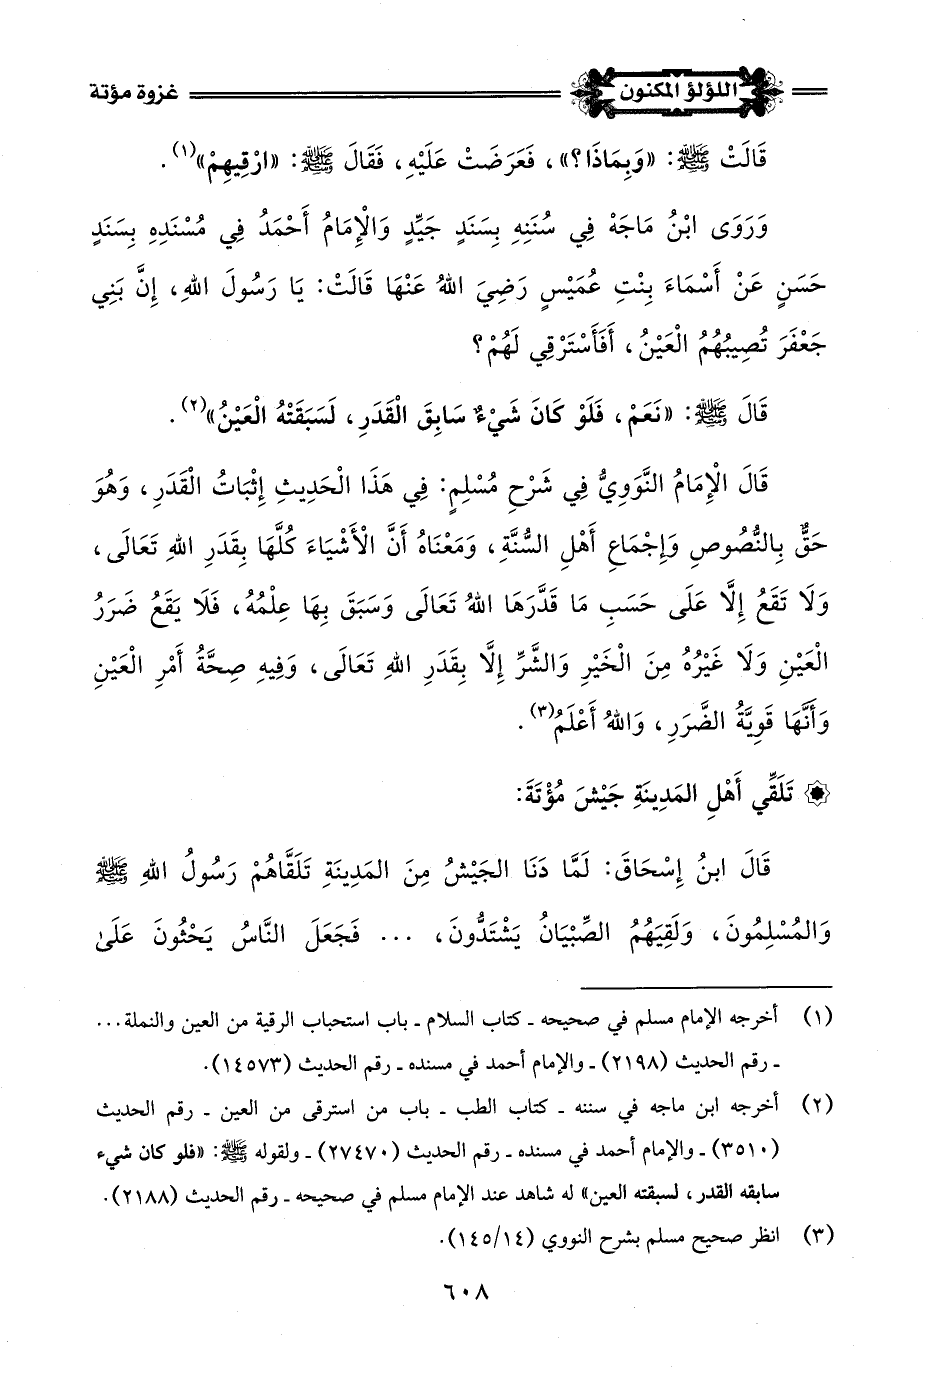 اللؤلؤ المكنون غزوة مؤتة
قَالَتْ ﷺ: «وَبِمَاذَا؟»، فَعَرَضَتْ عَلَيْهِ، فَقَالَ ﷺ: «ارْقِيهِمْ»(١).
وَرَوَى ابْنُ مَاجَهْ فِي سُنَنِهِ بِسَنَدٍ جَيِّدٍ وَالْإِمَامُ أَحْمَدُ فِي مُسْنَدِهِ بِسَنَدٍ
حَسَنٍ عَنْ أَسْمَاءَ بِنْتِ عُمَيْسٍ رَضِيَ اللهُ عَنْهَا قَالَتْ: يَا رَسُولَ اللهِ، إِنَّ بَنِي
جَعْفَرَ تُصِيبُهُمُ الْعَيْنُ، أَفَأَسْتَرْقِي لَهُمْ؟
قَالَ ﷺ: «نَعَمْ، فَلَوْ كَانَ شَيْءٌ سَابِقَ الْقَدَرِ، لَسَبَقَتْهُ الْعَيْنُ»(٢).
قَالَ الْإِمَامُ النَّوَوِيُّ فِي شَرْحِ مُسْلِمٍ: فِي هَذَا الْحَدِيثِ إِثْبَاتُ الْقَدَرِ، وَهُوَ
حَقٌّ بِالنُّصُوصِ وَإِجْمَاعِ أَهْلِ السُّنَّةِ، وَمَعْنَاهُ أَنَّ الْأَشْيَاءَ كُلَّهَا بِقَدَرِ اللهِ تَعَالَى،
وَلَا تَقَعُ إِلَّا عَلَى حَسَبِ مَا قَدَّرَهَا اللهُ تَعَالَى وَسَبَقَ بِهَا عِلْمُهُ، فَلَا يَقَعُ ضَرَرُ
الْعَيْنِ وَلَا غَيْرُهُ مِنَ الْخَيْرِ وَالشَّرِّ إِلَّا بِقَدَرِ اللهِ تَعَالَى، وَفِيهِ صِحَّةُ أَمْرِ الْعَيْنِ
وَأَنَّهَا قَوِيَّةُ الضَّرَرِ، وَاللهُ أَعْلَمُ(٣).
تَلَقِّي أَهْلِ المَدِينَةِ جَيْشَ مُؤْتَةَ:
قَالَ ابنُ إِسْحَاقَ: لَمَّا دَنَا الجَيْشُ مِنَ المَدِينَةِ تَلَقَّاهُمْ رَسُولُ اللهِ ﷺ
وَالمُسْلِمُونَ، وَلَقِيَهُمُ الصِّبْيَانُ يَشْتَدُّونَ، ... فَجَعَلَ النَّاسُ يَحْثُونَ عَلَىٰ
(١) أخرجه الإمام مسلم في صحيحه ـ كتاب السلام ـ باب استحباب الرقية من العين والنملة...
ـ رقم الحديث (٢١٩٨) ـ والإمام أحمد في مسنده ـ رقم الحديث (١٤٥٧٣).
(٢) أخرجه ابن ماجه في سننه ـ كتاب الطب ـ باب من استرقى من العين ـ رقم الحديث
(٣٥١٠) ـ والإمام أحمد في مسنده ـ رقم الحديث (٢٧٤٧٠) ـ ولقوله ﷺ: «فلو كان شيء
سابقه القدر، لسبقته العين» له شاهد عند الإمام مسلم في صحيحه ـ رقم الحديث (٢١٨٨).
(٣) انظر صحيح مسلم بشرح النووي (١٤٥/١٤).
٦٠٨